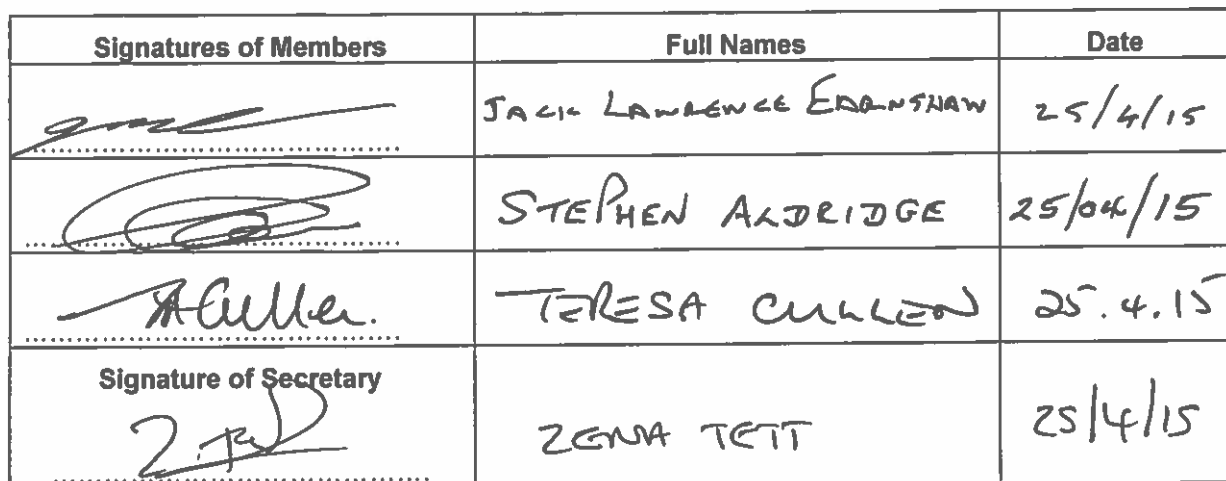 Signatures of Members Full Names Date
JACK LAWRENCE EARNSHAW 25/4/15
STEPHEN ALDRIDGE 25/04/15
TACullen. TERESA CULLEN 25.4.15
Signature of Secretary
ZENA TETT 25/4/15